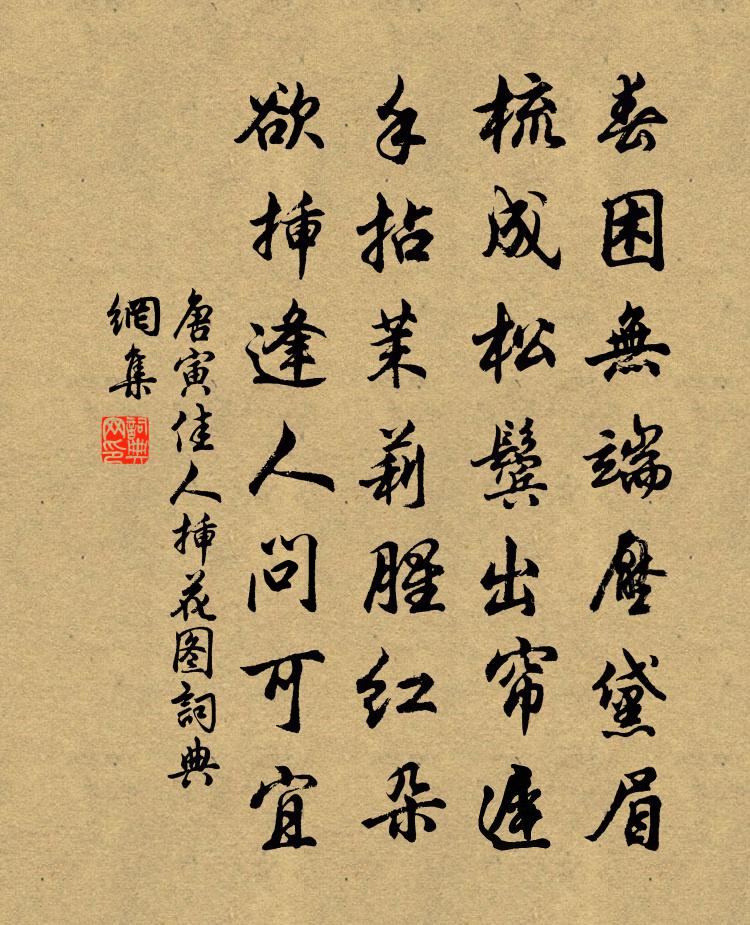 春困無端壓黛眉
梳成松鬢出帘遲
手拈茉莉腥紅朵
欲插逢人問可宜
唐寅佳人插花图詞典
網集
詞典
网印